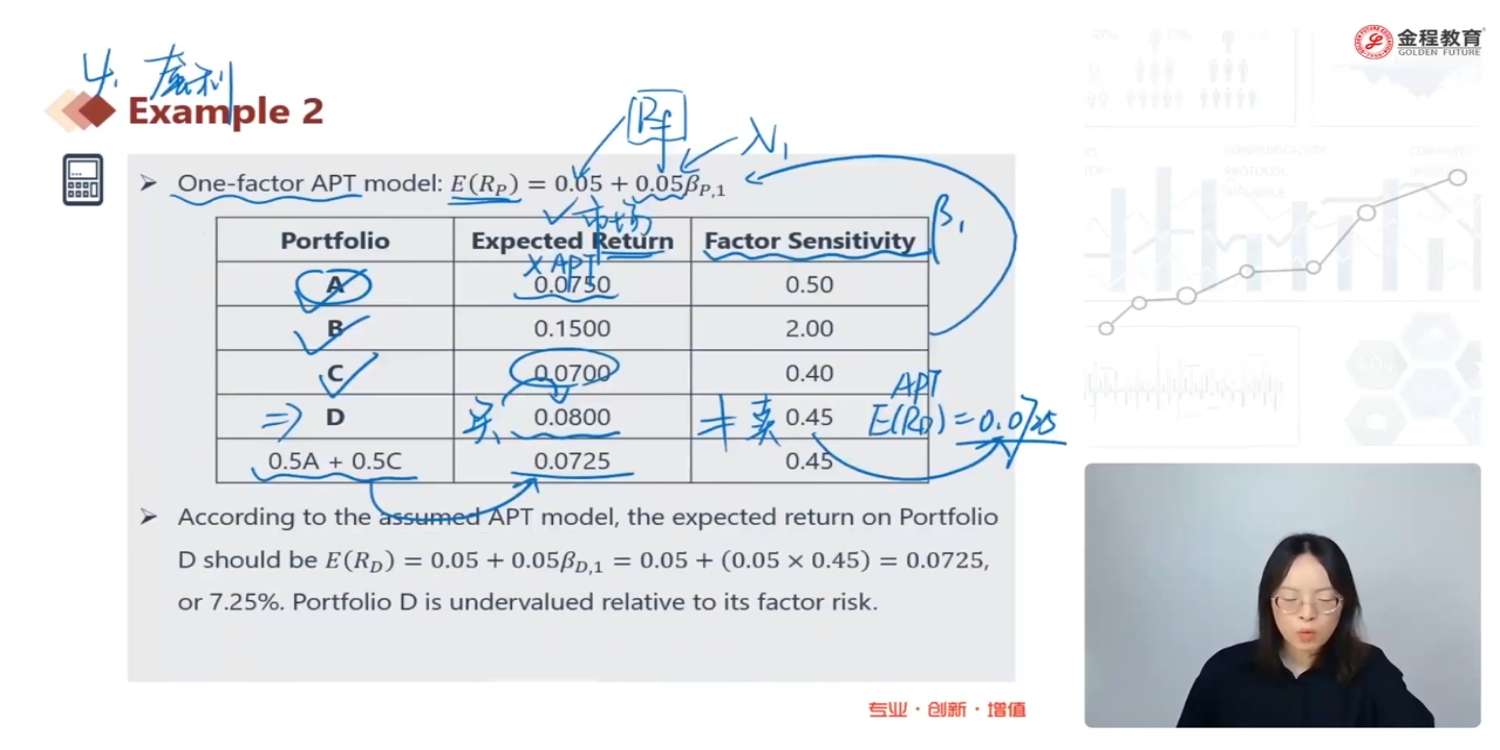 金程教育
GOLDEN FUTURE
4. 套利
Example 2
Rf
λ₁
One-factor APT model: E(R_P) = 0.05 + 0.05β_{P,1}
市场
β₁
Portfolio Expected Return Factor Sensitivity
× APT
A 0.0750 0.50
B 0.1500 2.00
C 0.0700 0.40
APT
⇒ D 买 0.0800 卖 0.45 E(R_D) = 0.0725
0.5A + 0.5C 0.0725 0.45
According to the assumed APT model, the expected return on Portfolio
D should be E(R_D) = 0.05 + 0.05β_{D,1} = 0.05 + (0.05 × 0.45) = 0.0725,
or 7.25%. Portfolio D is undervalued relative to its factor risk.
专业·创新·增值